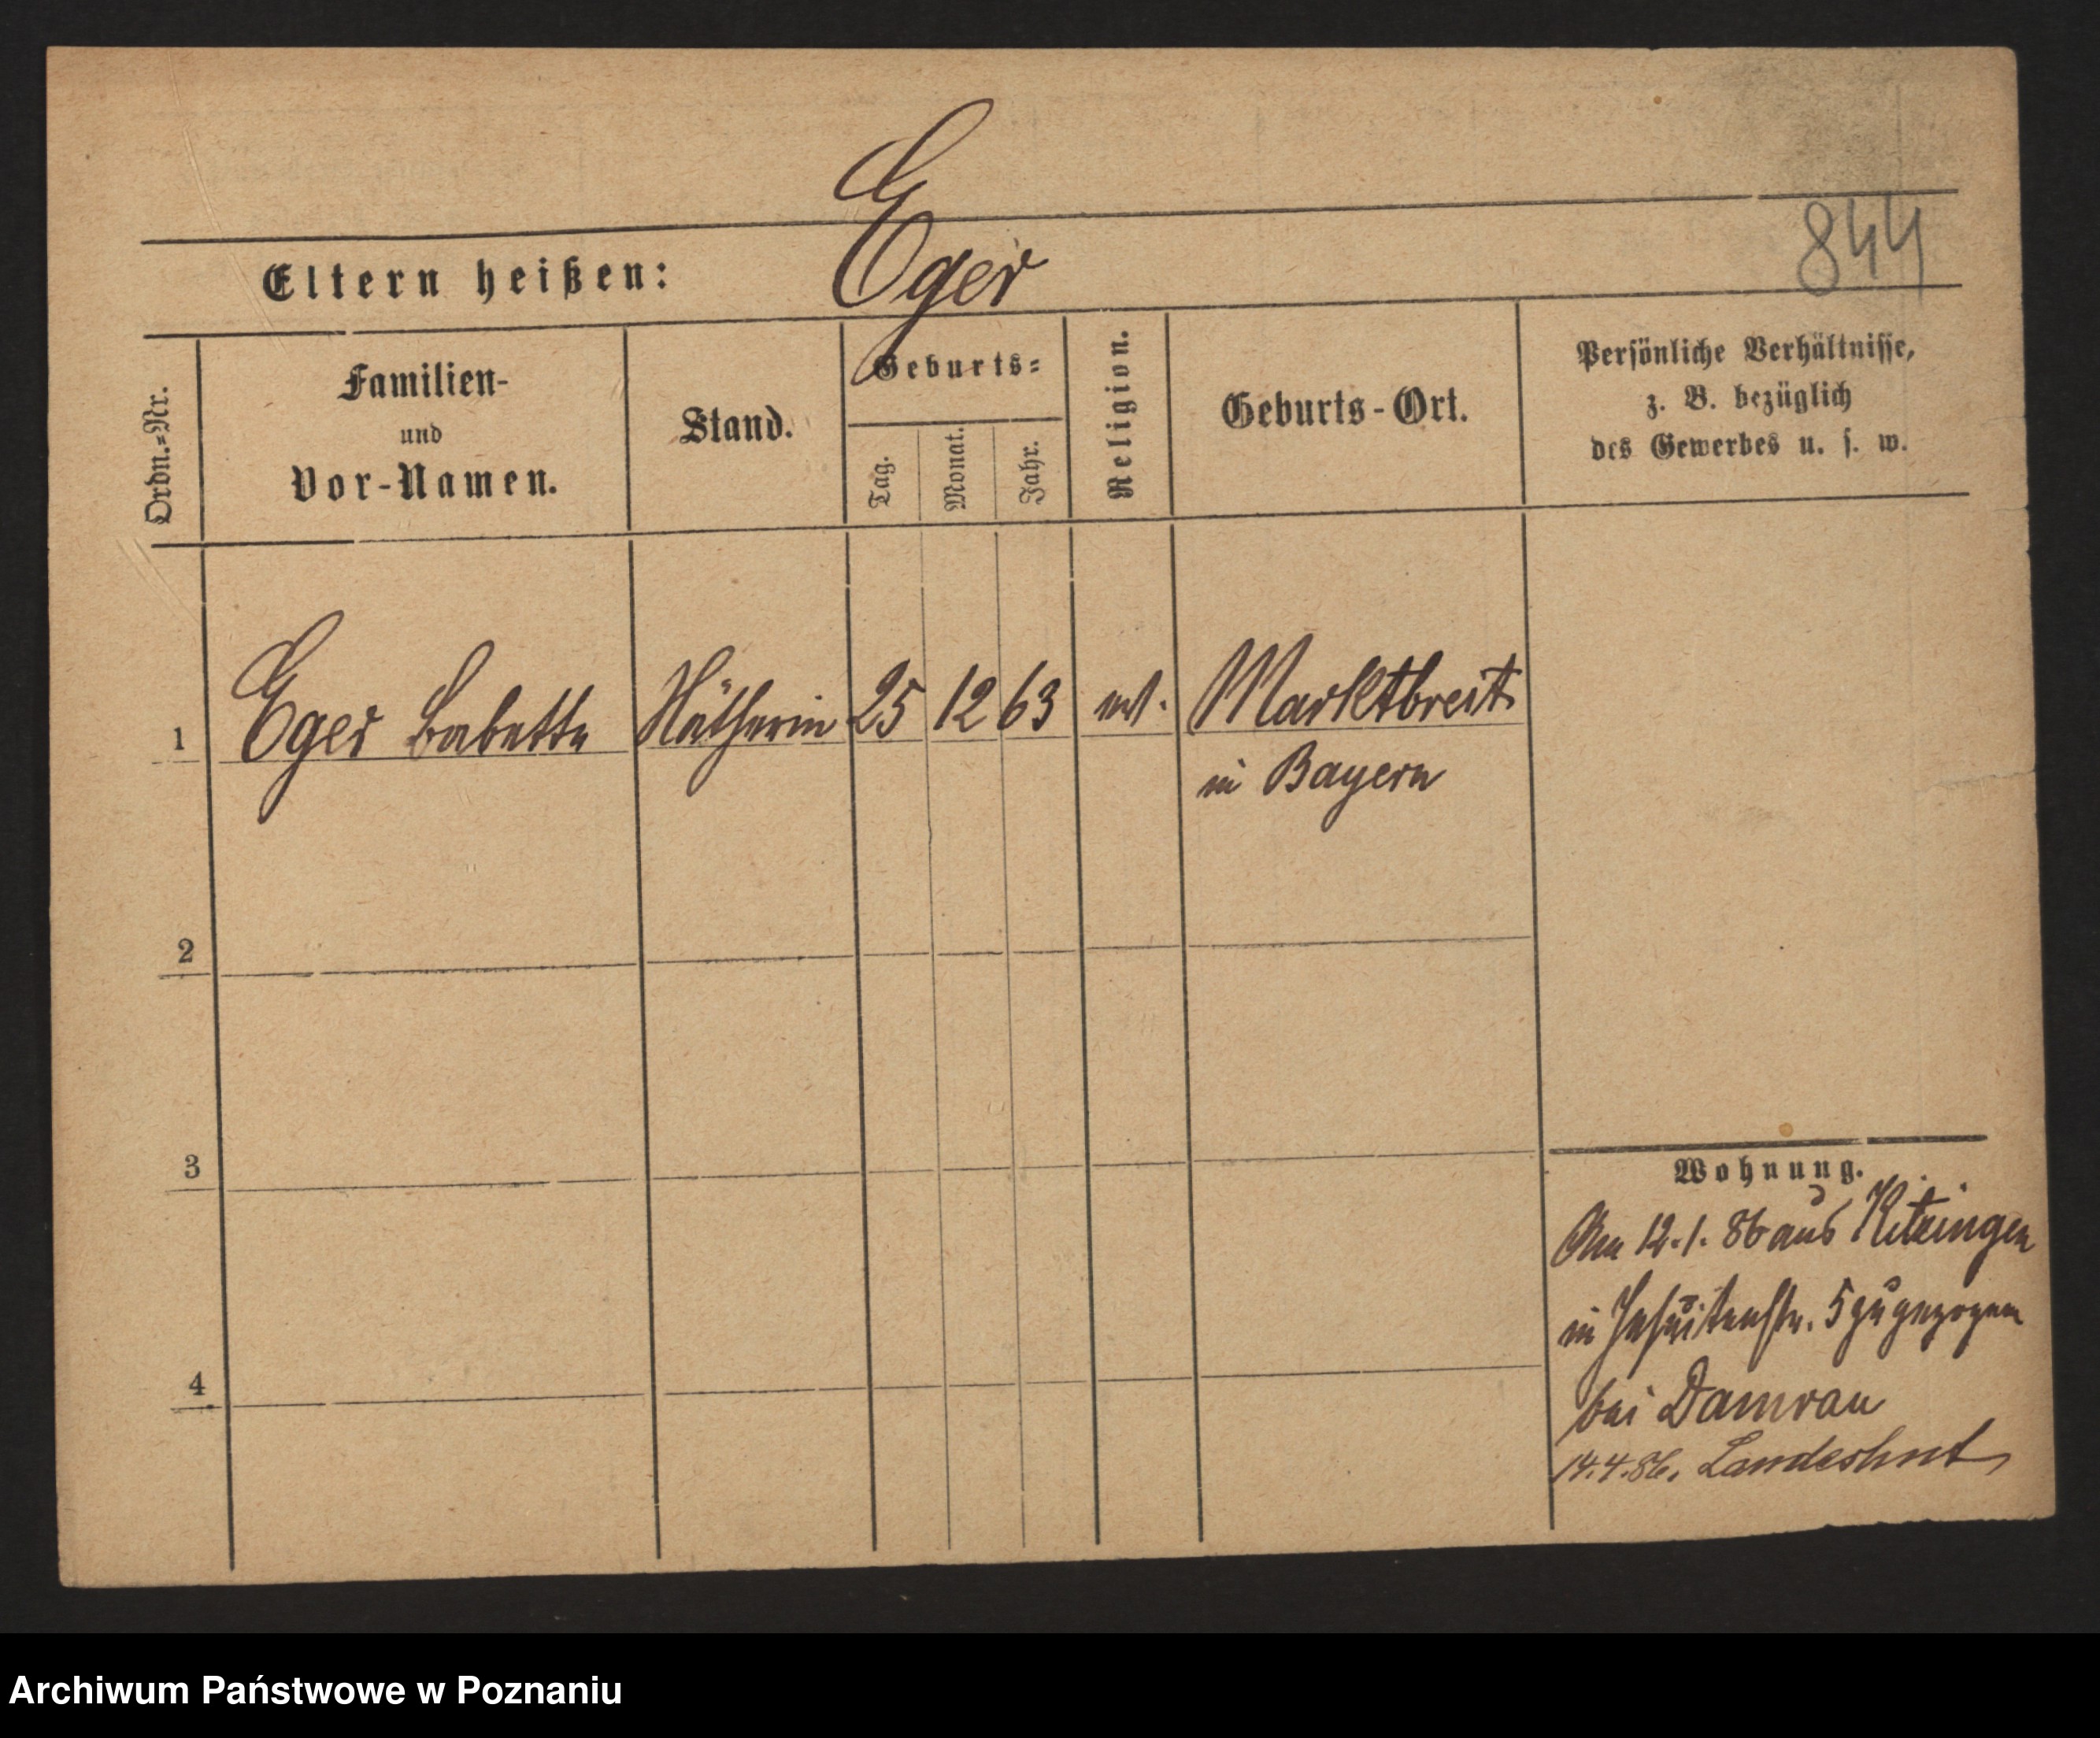 Eger
844
Eltern heißen:
Ordn.=Nr.
Familien-
und
Vor-Namen.
Stand.
Geburts=
Tag.
Monat.
Jahr.
Religion.
Geburts-Ort.
Persönliche Verhältnisse,
z. B. bezüglich
des Gewerbes u. s. w.
1 Eger Babette Nätherin 25 12 63 Marktbreit
in Bayern
2
3
4
Wohnung.
Am 12.1.86 aus Kitzingen
in Jesuitenstr. 5 zugezogen
bei Damrau
14.4.86. Landeshut
Archiwum Państwowe w Poznaniu